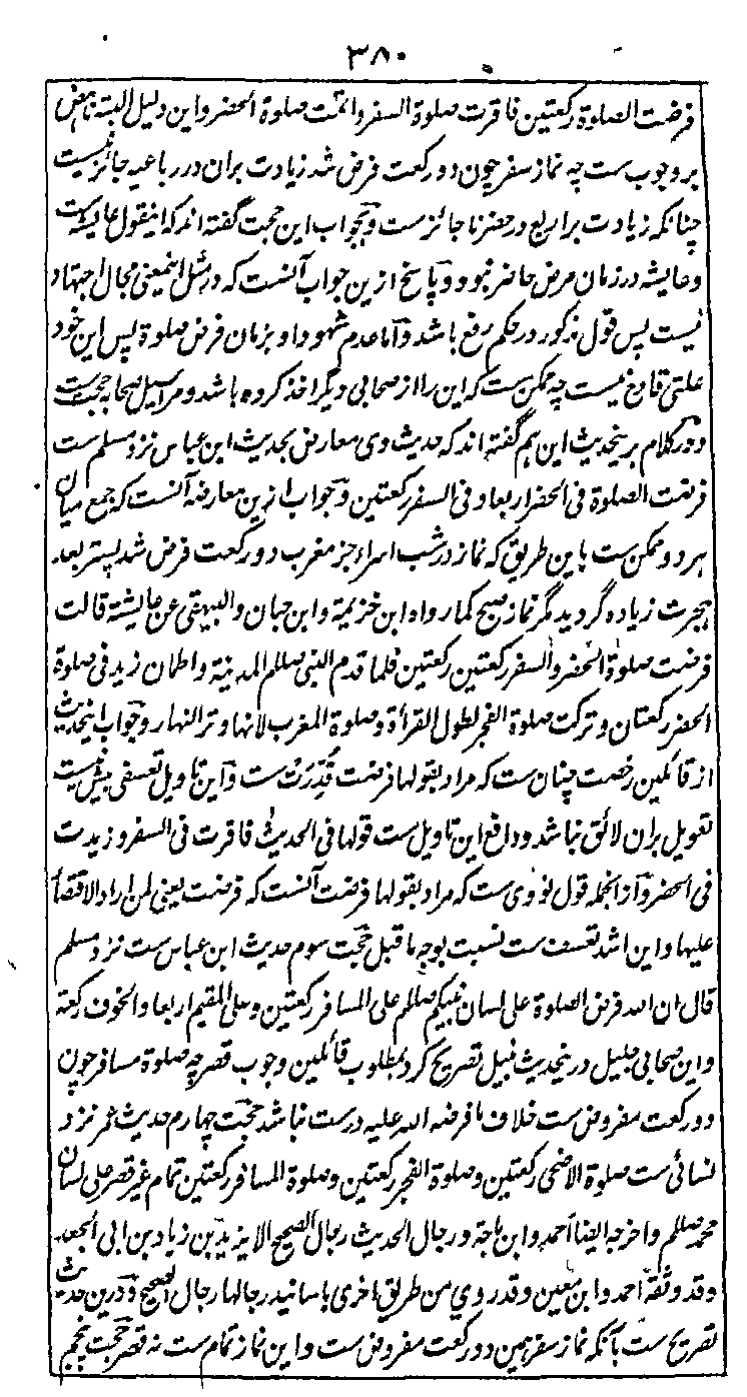 ۳۸۰
فرضت الصلوة رکعتین فاقرت صلوة السفر واتمت صلوة الحضر واین دلیل البته ناهض
بر وجوب ست چه نماز سفر چون دو رکعت فرض شد زیادت بران در رباعیه جائز نیست
چنانکه زیادت بر اربع در حضر ناجائز ست و بجواب این حجت گفته اند که اینقول عایشه ست
و عایشه در زمان فرض حاضر نبود و پاسخ ازین جواب آنست که در مثل اینمعنی مجال اجتهاد
نیست پس قول مذکور در حکم رفع باشد و اما عدم شهود او بزمان فرض صلوة پس این خود
علتی قادح نیست چه ممکن ست که این را از صحابی دیگر اخذ کرده باشد و مراسیل صحابه حجت ست
و در کلام برینحدیث این هم گفته اند که حدیث وی معارض بحدیث ابن عباس نزد مسلم ست
فرضت الصلوة فی الحضر اربعا وفی السفر رکعتین و جواب ازین معارضه آنست که جمع میان
هر دو ممکن ست باین طریق که نماز در شب اسراء جز مغرب دو رکعت فرض شد پستر بعد
هجرت زیاده گردید مگر نماز صبح کما رواه ابن خزیمة وابن حبان والبیهقی عن عایشة قالت
فرضت صلوة الحضر والسفر رکعتین رکعتین فلما قدم النبی صللم المدینة واطمان زید فی صلوة
الحضر رکعتان وترکت صلوة الفجر لطول القرأة وصلوة المغرب لانها وتر النهار و جواب اینحدیث
از قائلین رخصت چنان ست که مراد بقولها فرضت قدرت ست و این تاویل تعسفی بیش نیست
تعویل بران لائق نباشد و دافع این تاویل ست قولها فی الحدیث فاقرت فی السفر وزیدت
فی الحضر و از انجمله قول نووی ست که مراد بقولها فرضت آنست که فرضت یعنی لمن اراد الاقتصار
علیها و این اشد تعسف ست نسبت بوجه ماقبل حجت سوم حدیث ابن عباس ست نزد مسلم
قال ان الله فرض الصلوة علی لسان نبیکم صللم علی المسافر رکعتین وعلی المقیم اربعا والخوف رکعة
و این صحابی جلیل درینحدیث نبیل تصریح کرد بمطلوب قائلین وجوب قصر چه صلوة مسافر چون
دو رکعت مفروض ست خلاف ما فرضه الله علیه درست نباشد حجت چهارم حدیث عمر نزد
نسائی ست صلوة الاضحی رکعتین وصلوة الفجر رکعتین وصلوة المسافر رکعتین تمام غیر قصر علی لسان
محمد صللم واخرجه ایضا احمد وابن ماجة ورجال الحدیث رجال الصحیح الا یزید بن زیاد بن ابی الجعد
وقد وثقه احمد وابن معین وقد روي من طریق اخری باسانید رجالها رجال الصحیح و درین حدیث
تصریح ست بآنکه نماز سفر همین دو رکعت مفروض ست و این نماز تمام ست نه قصر حجت پنجم